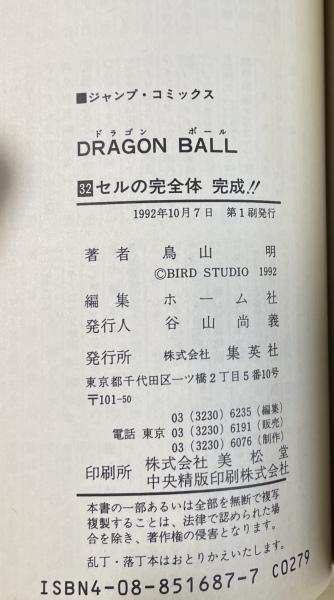 ■ジャンプ・コミックス
ドラゴン ボール
DRAGON BALL
32 セルの完全体 完成!!
1992年10月7日 第1刷発行
著者 鳥山 明
©BIRD STUDIO 1992
編集 ホーム社
発行人 谷山尚義
発行所 株式会社 集英社
東京都千代田区一ツ橋2丁目5番10号
〒101-50
03 (3230) 6235 (編集)
電話 東京 03 (3230) 6191 (販売)
03 (3230) 6076 (制作)
印刷所 株式会社 美松堂
中央精版印刷株式会社
本書の一部あるいは全部を無断で複写
複製することは、法律で認められた場
合を除き、著作権の侵害となります。
乱丁・落丁本はおとりかえいたします。
ISBN4-08-851687-7 C0279